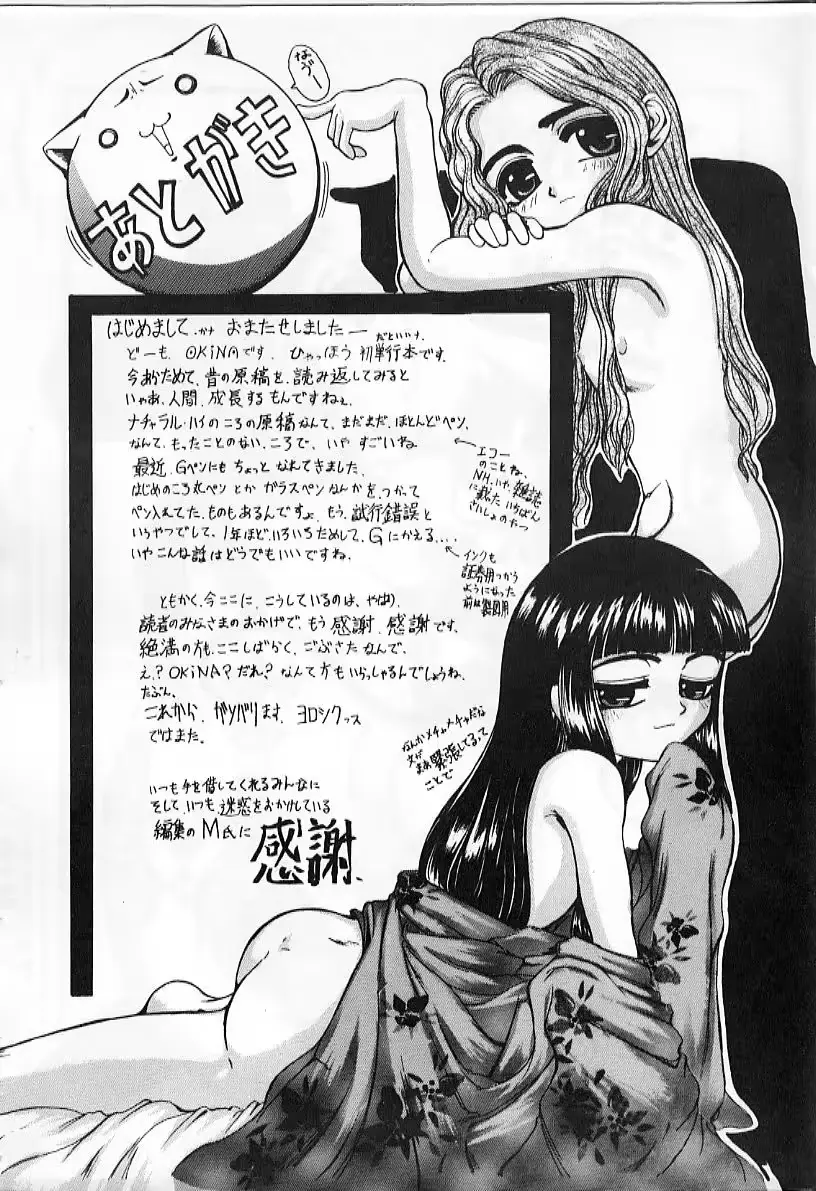 あとがき
なうー
はじめまして、かな おまたせしましたー
だといいナ、
どーも OKiNAです、ひゃっほう 初単行本です。
今あらためて、昔の原稿を、読み返してみると
いやあ、人間、成長するもんですねえ、
ナチャラル・ハイのころの原稿なんて、まだまだ、ほとんどペン、
なんて、もったことのない、ころで、いや すごいやね
最近、Gペンにも ちょっと なれてきました、
はじめのころ丸ペン とか ガラスペンなんかを、つかって
ペン入れてた、ものもあるんですよ、もう、試行錯誤と
いうやつでして、1年ほど、いろいろためして、Gにかえる....
いやこんな話はどうでもいいですね、
←エコー
のことね、
NH、いや、雑誌
に載った いちばん
さいしょのやつ
←インクも
証券用つかう
ようになった
前は製図用
ともかく、今ここに、こうしているのは、やはり、
読者のみなさまのおかげで、もう 感謝、感謝です、
絶満の方も、ここしばらく、ごぶさた なんで、
え？OKiNA？だれ？なんて方もいらっしゃるんでしょうね、
たぶん、
これから、ガンバります、ヨロシクっス
ではまた。
なんかメチャメチャだな
文が
緊張してるって
ことで
いつも手を借してくれるみんなに
そして、いつも、迷惑をおかけしている
編集の M氏に 感謝、